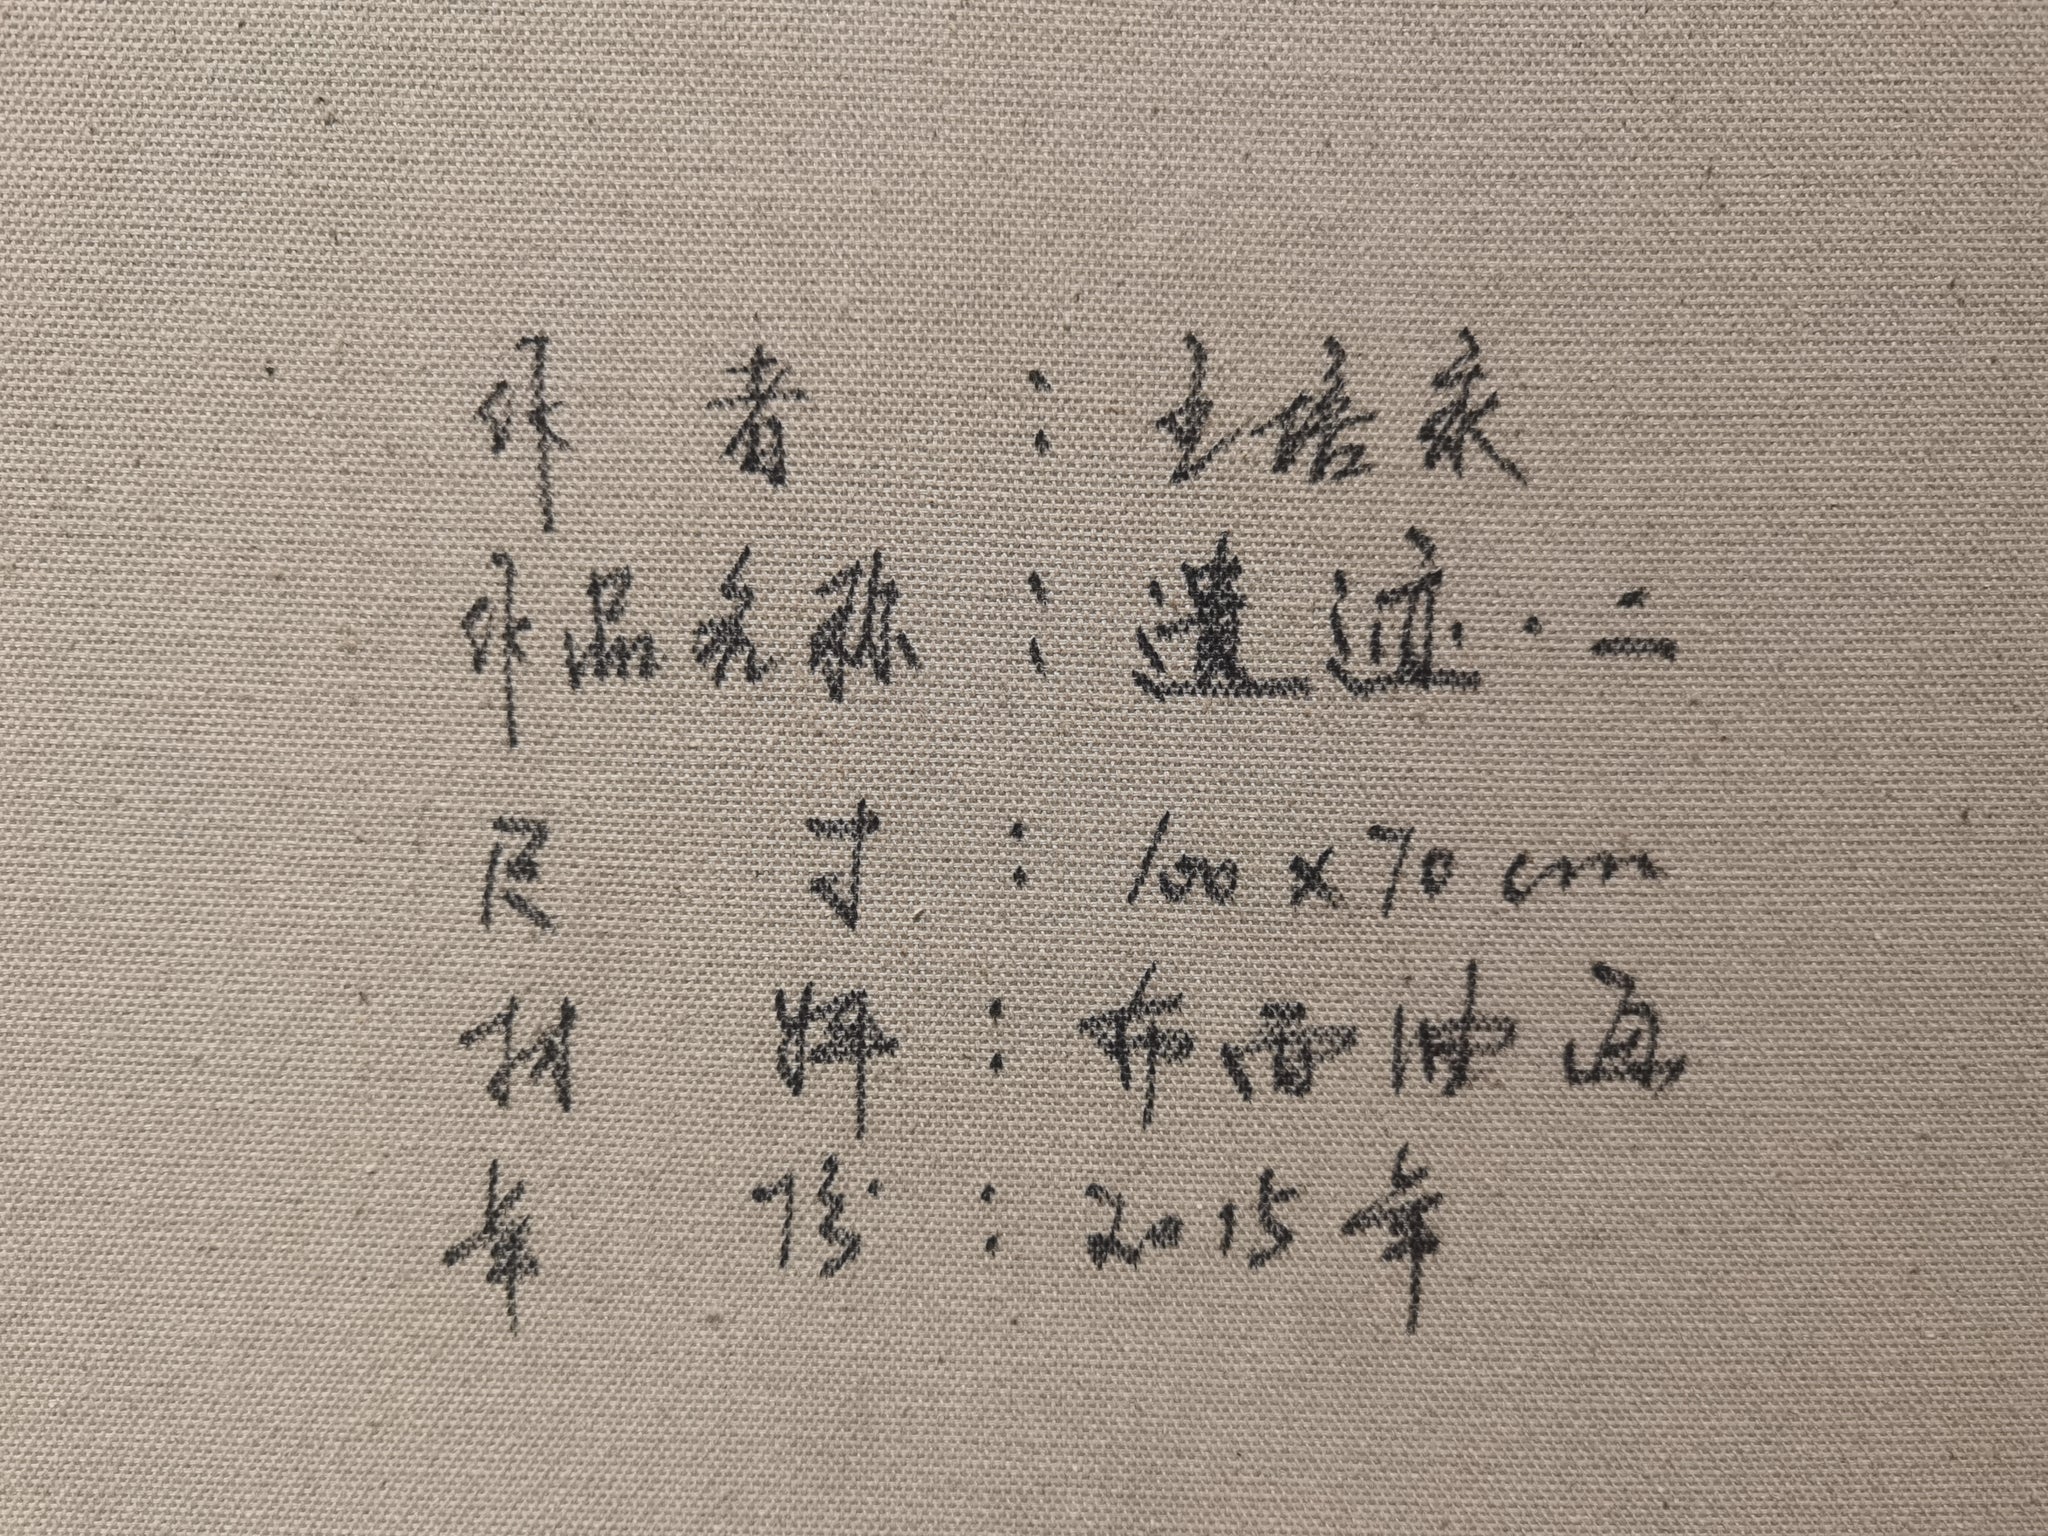 作者：王培永
作品名称：遗迹·二
尺寸：100×70cm
材料：布面油画
年份：2015年